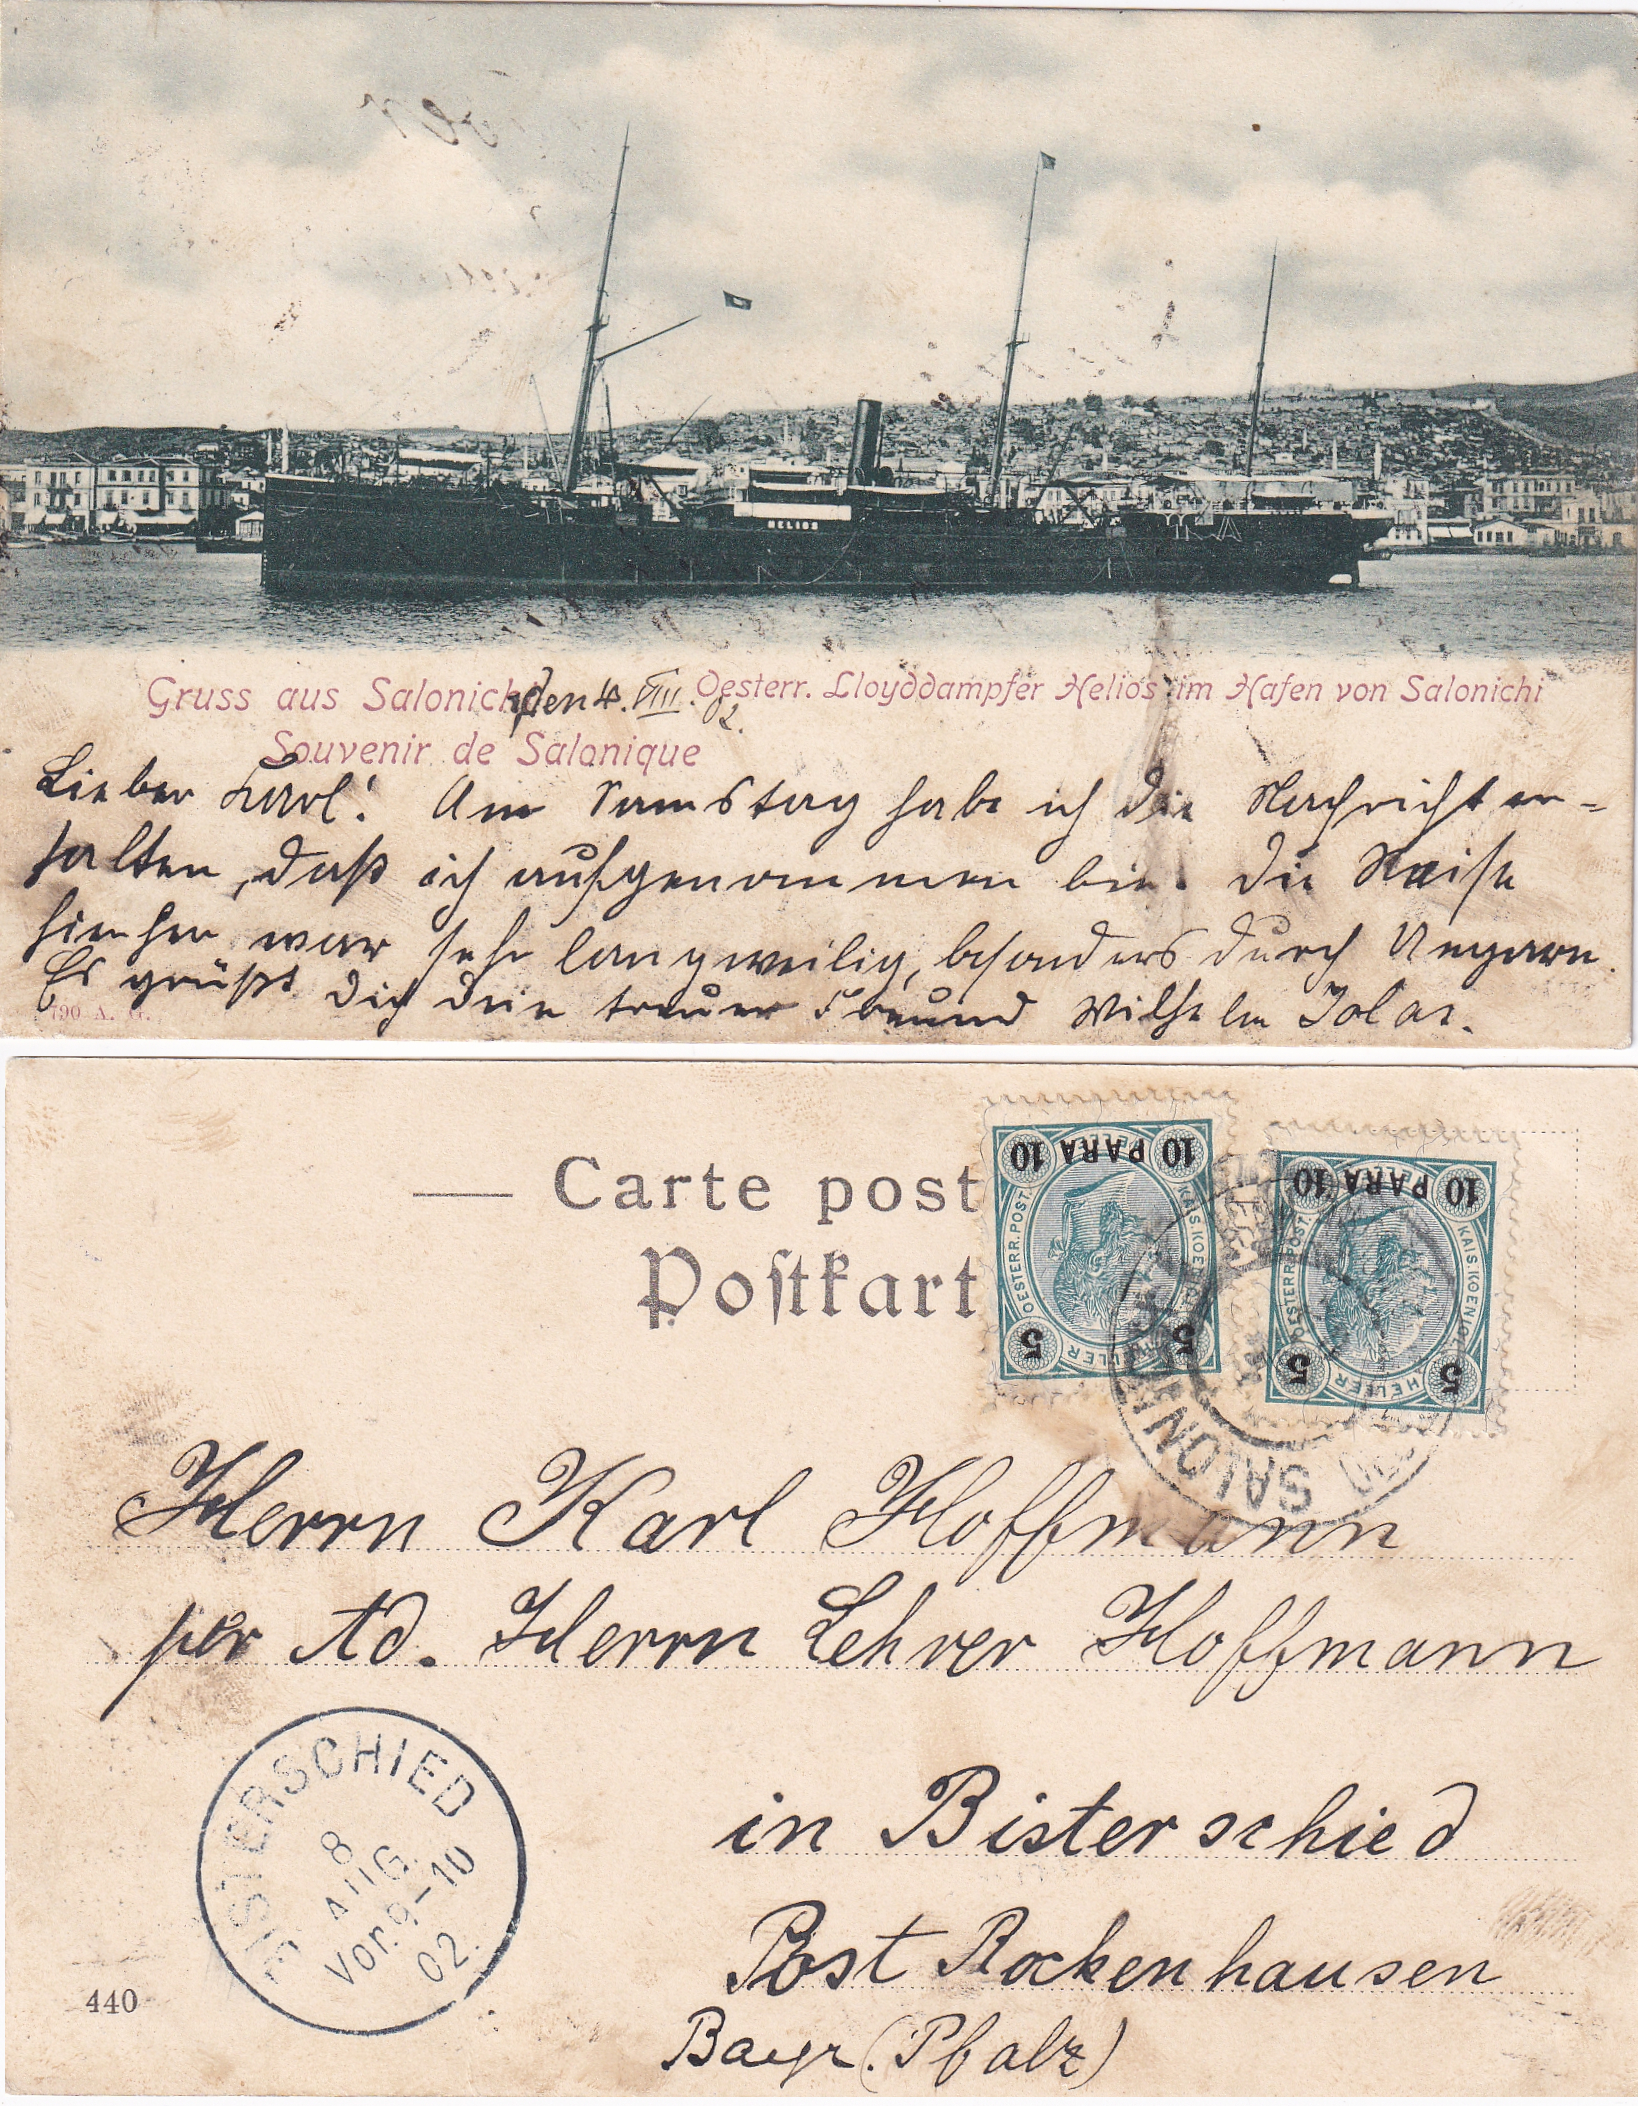 HELIOS
Gruss aus Salonichi
den 4. VIII. 02.
Oesterr. Lloyddampfer Helios im Hafen von Salonichi
Souvenir de Salonique
Lieber Karl! Am Samstag habe ich die Nachricht er-
halten, daß ich aufgenommen bin. Die Reise
hierher war sehr langweilig, besonders durch Ungarn.
Es grüßt dich dein treuer Freund Wilhelm
790 A. G.
Carte post
Postkart
10 PARA 10
OESTERR. POST.
KAIS. KOENIGL
5 HELLER 5
10 PARA 10
OESTERR. POST.
KAIS. KOENIGL
5 HELLER 5
SALON
Herrn Karl Hoffmann
per Ad. Herrn Lehrer Hoffmann
in Bisterschied
Post Rockenhausen
Bayr. (Pfalz)
BISTERSCHIED
8
AUG.
Vor. 9-10
02.
440